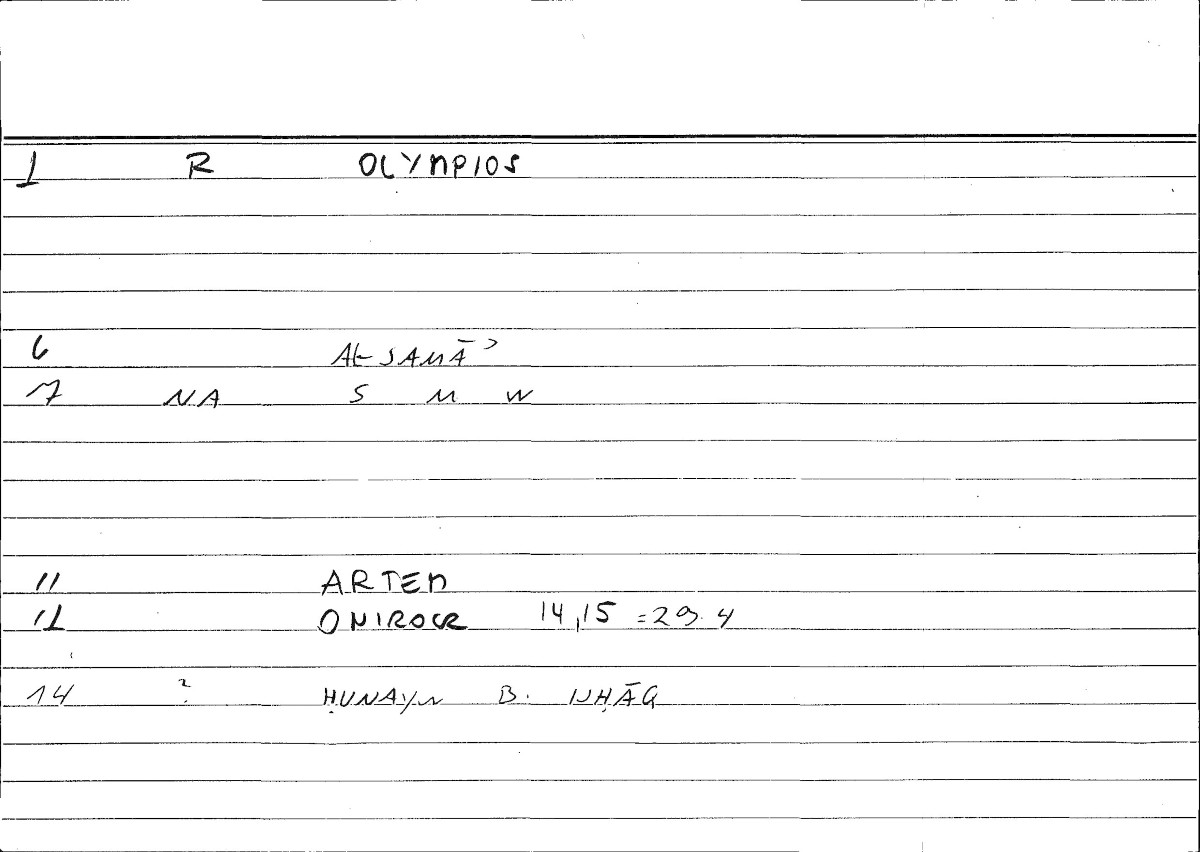 1 R OLYMPIOS
6 AL-SAMĀʾ
7 NA S M W
11 ARTEM
12 ONIROCR 14,15 =29.4
14 ? ḤUNAYN B. ISḤĀQ